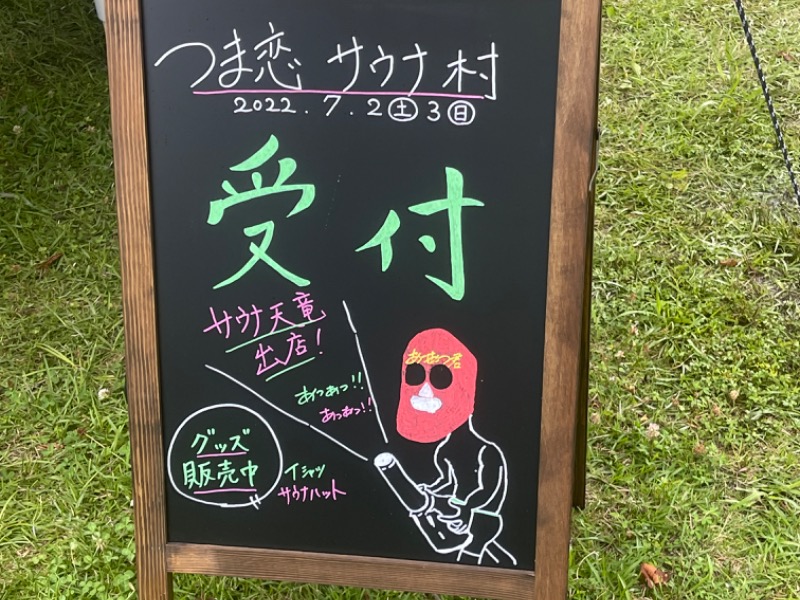 つま恋 サウナ村
2022.7.2㊏3㊐
受付
サウナ天竜
出店!
あつあつ!!
あつあつ!!
あつあつ君
グッズ
販売中
Tシャツ
サウナハット